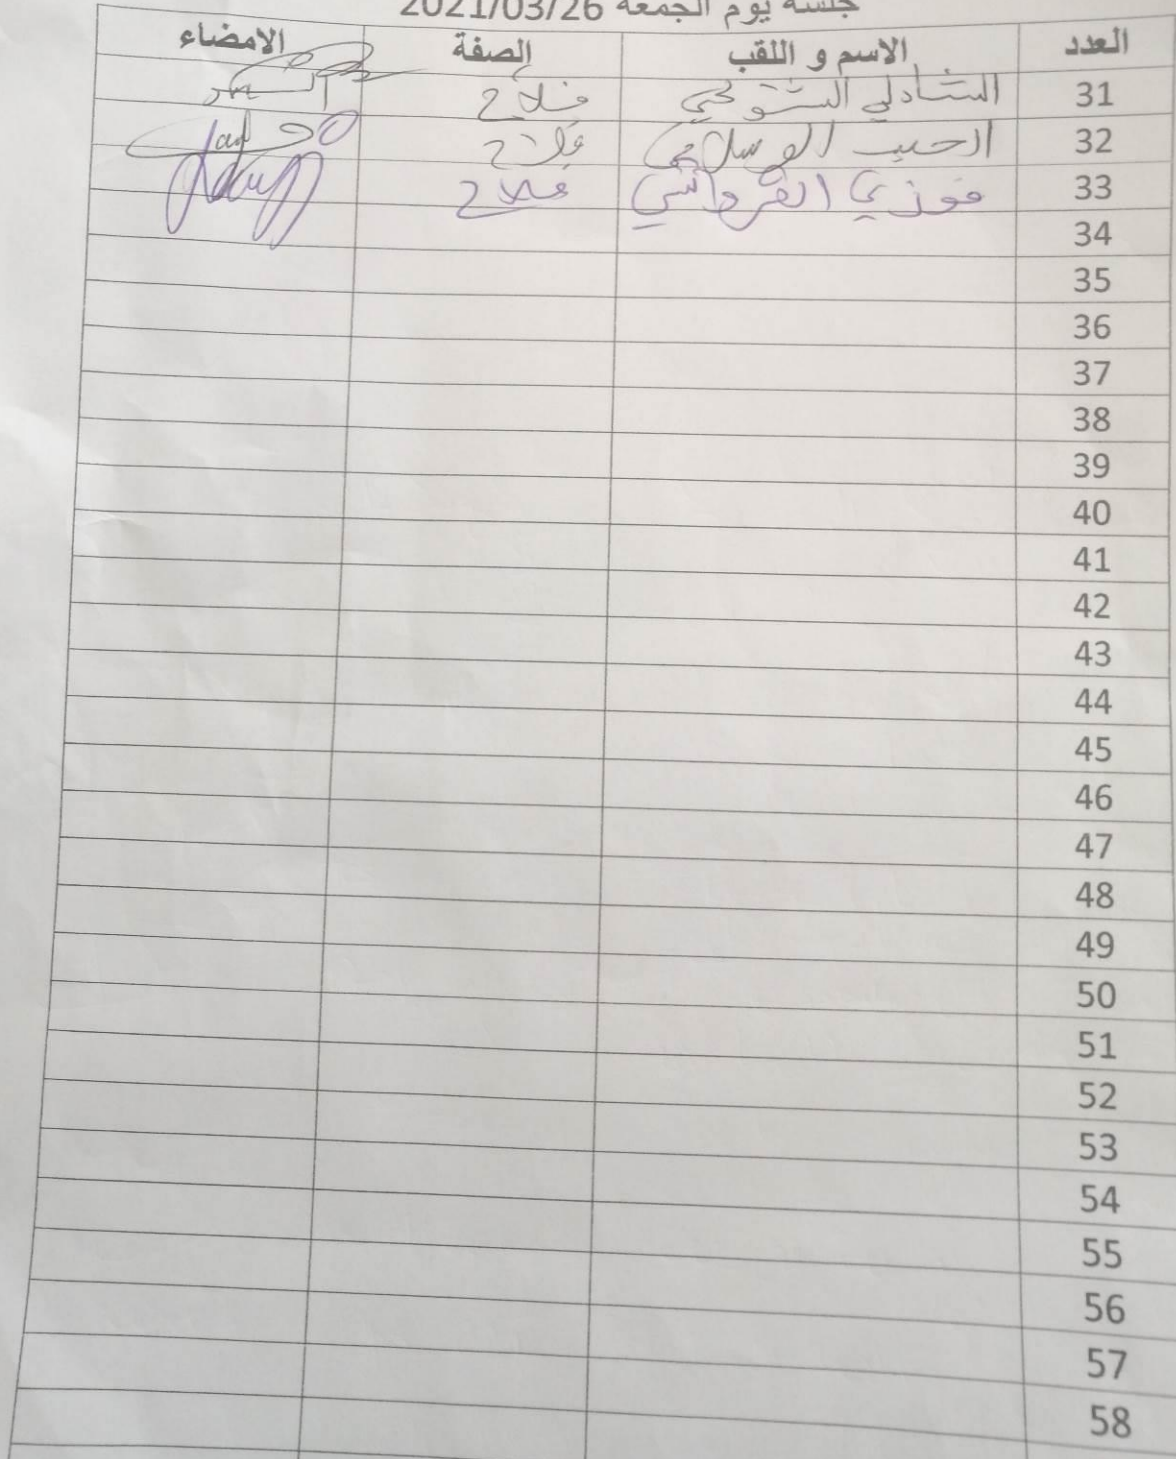 جلسة يوم الجمعة 2021/03/26
العدد الاسم و اللقب الصفة الامضاء
31 الشادلي فلاح
32 الحبيب الوسلاتي فلاح
33 فوزي الفرواتي فلاح
34
35
36
37
38
39
40
41
42
43
44
45
46
47
48
49
50
51
52
53
54
55
56
57
58